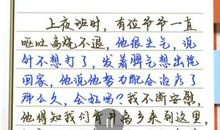 上夜班时，有位爷爷一直
呕吐高烧不退，他很生气，说
针不想打了，发着脾气想出院
回家，他说他努力配合治疗了
那么久，会好吗？我不断安慰，
他得知我们背井离乡来到这里，